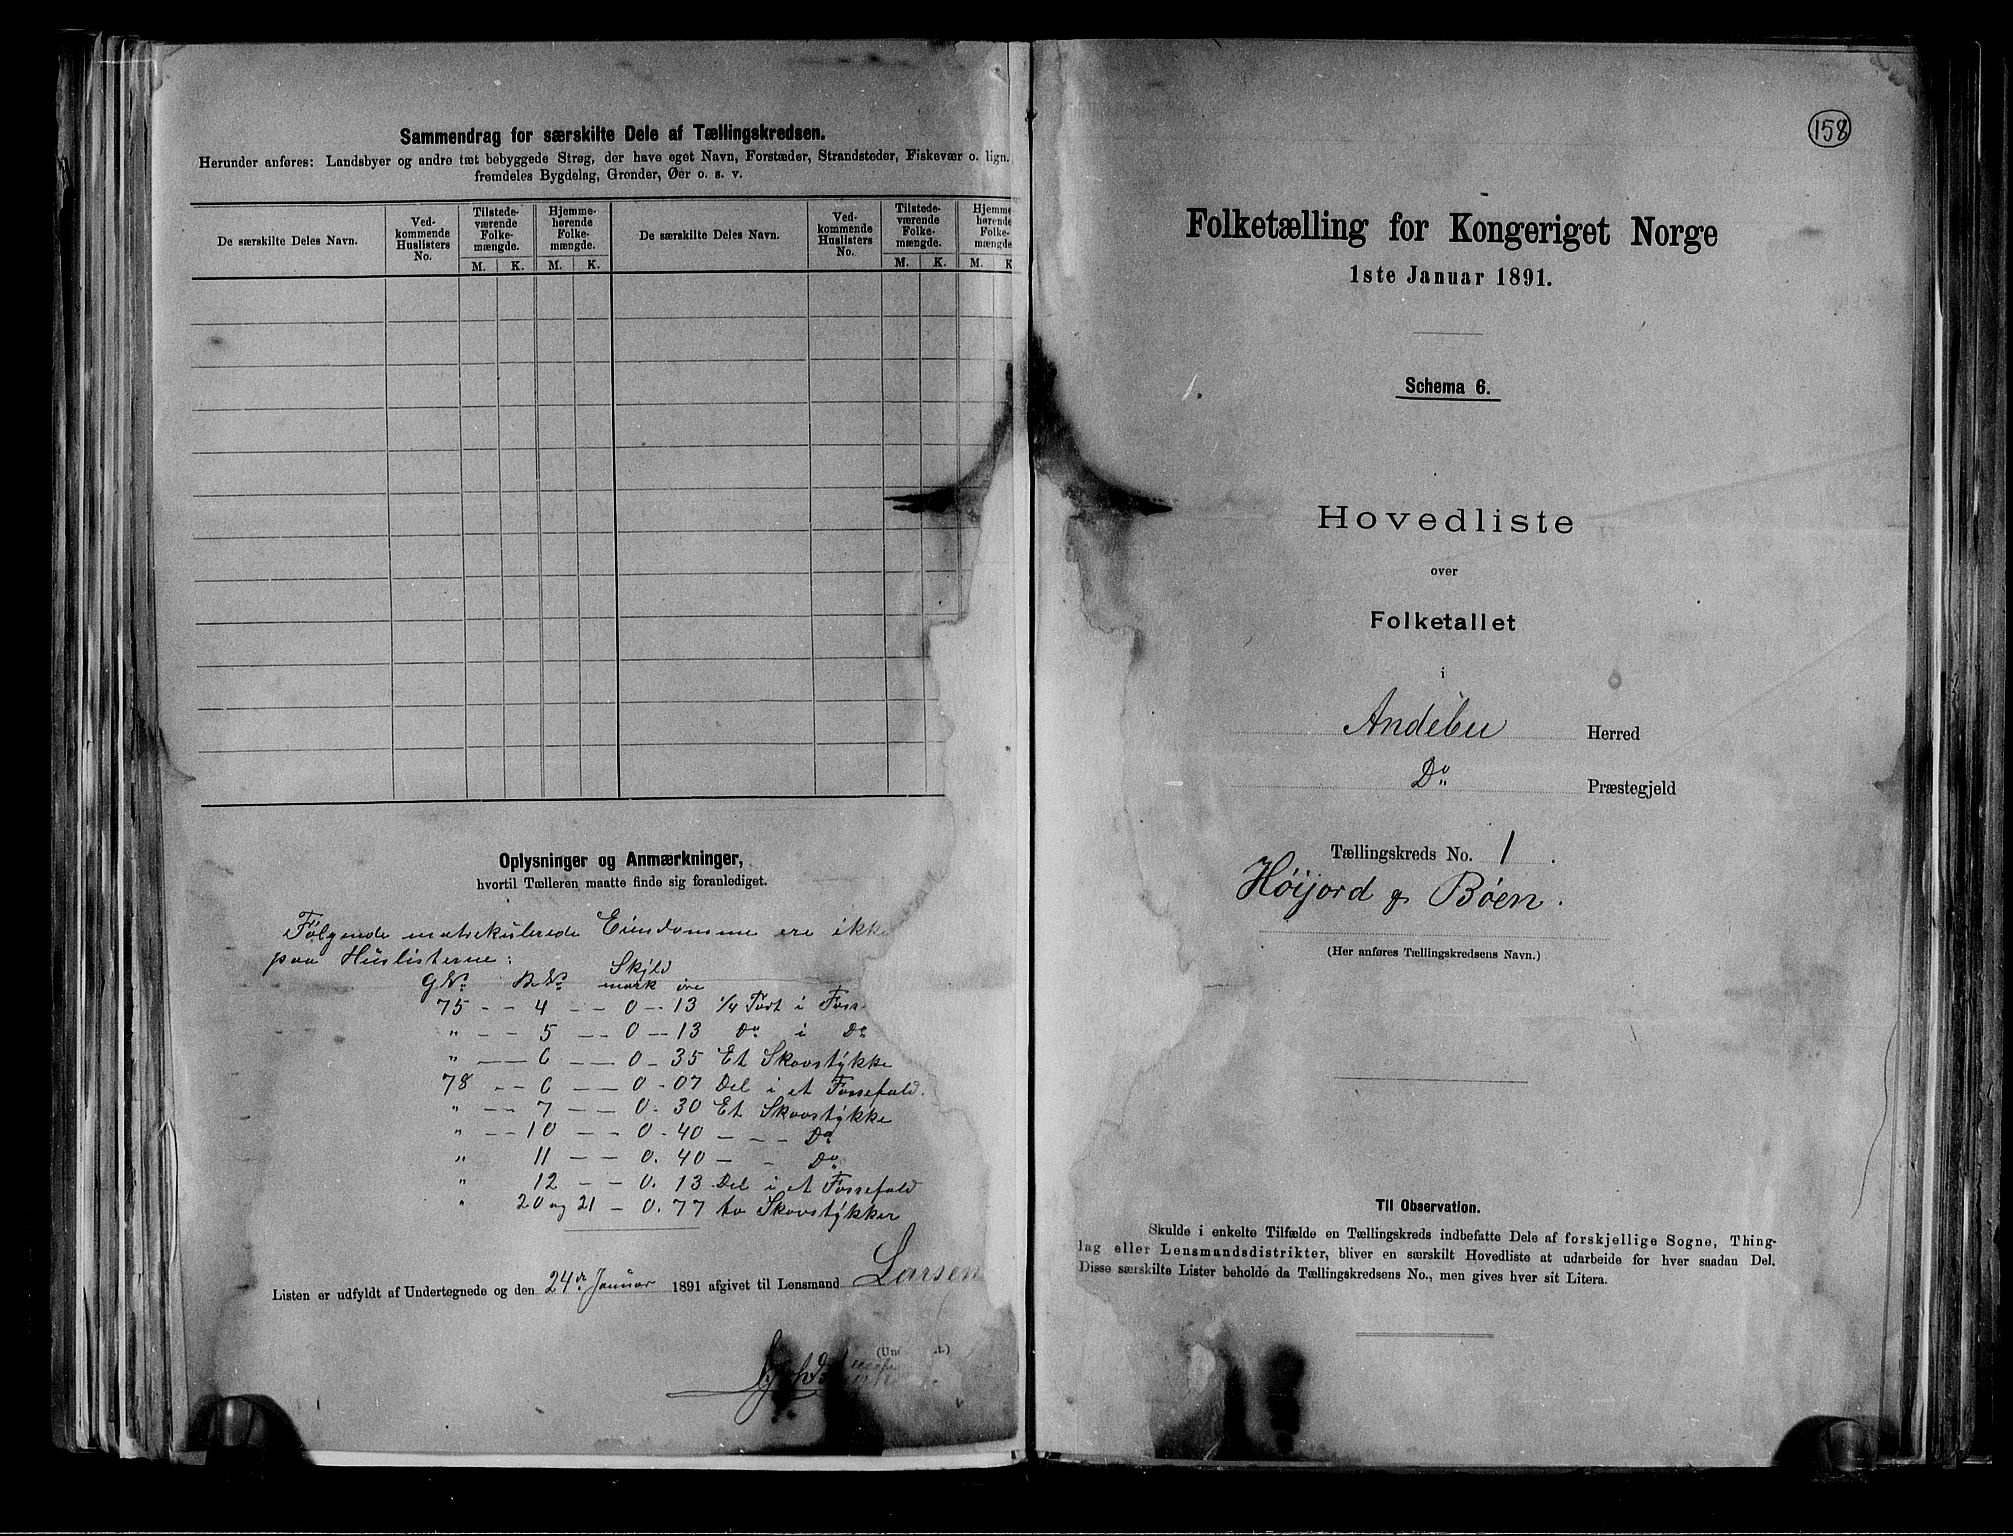 Sammendrag for særskilte Dele af Tællingskredsen.
Herunder anføres: Landsbyer og andre tæt bebyggede Strøg, der have eget Navn, Forstæder, Strandsteder, Fiskevær o. lign.
fremdeles Bygdelag, Grender, Øer o. s. v.
De særskilte Deles Navn.
Ved-
kommende
Huslisters
No.
Tilstede-
værende
Folke-
mængde.
Hjemme-
hørende
Folke-
mængde.
De særskilte Deles Navn.
Ved-
kommende
Huslisters
No.
Tilstede-
værende
Folke-
mængde.
Hjemme
hørende
Folke-
mængde
M. K. M. K. M. K. M. K
Oplysninger og Anmærkninger,
hvortil Tælleren maatte finde sig foranlediget.
Følgende matrikulerede Eiendomme ere ikke
paa Huslisterne:
Skjld
G.No. B.No. mark øre
75 - - 4 - - 0 -- 13 1/4 Part i Foss-
" - - 5 - - 0 -- 13 Do i Do
" -- 6 -- 0 - 35 Et Skovstykke
78 - - 6 -- 0 - 07 Del i et Fossefald.
" - - 7 -- 0. 30 Et Skovstykke
" -- 10 -- 0 - 40 - - - Do
" 11 -- 0. 40 - - Do
" 12 -- 0. 13 Del i et Fossefald
" 20 og 21 - 0. 77 to Skovstykker
Listen er udfyldt af Undertegnede og den 24de Januar 1891 afgivet til Lensmand Larsen
158
Folketælling for Kongeriget Norge
1ste Januar 1891.
Schema 6.
1.
Hovedliste
over
Folketallet
i
Andebu Herred
Do Præstegjeld
Tællingskreds No. 1.
Høijord og Bøen.
(Her anføres Tællingskredsens Navn.)
Til Observation.
Skulde i enkelte Tilfælde en Tællingskreds indbefatte Dele af forskjellige Sogne, Thing-
lag eller Lensmandsdistrikter, bliver en særskilt Hovedliste at udarbeide for hver saadan Del.
Disse særskilte Lister beholde da Tællingskredsens No., men gives hver sit Litera.